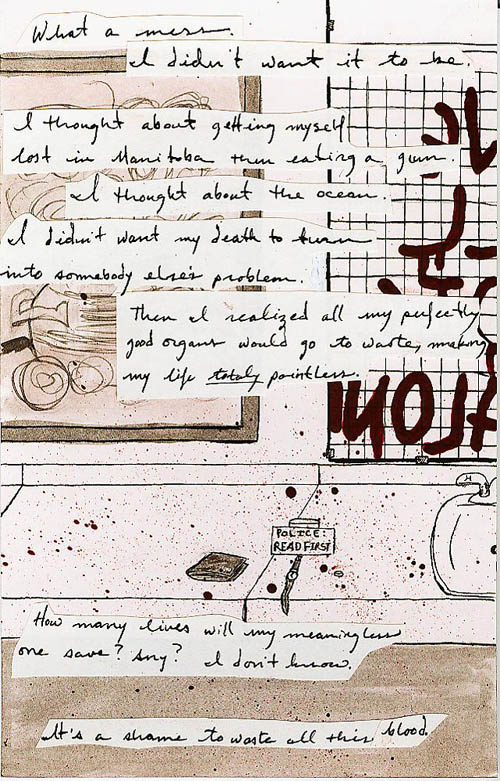 What a mess.
I didn't want it to be.
I thought about getting myself
lost in Manitoba then eating a gun.
I thought about the ocean.
I didn't want my death to turn
into somebody else's problem.
Then I realized all my perfectly
good organs would go to waste, making
my life totaly pointless.
POLICE:
READ FIRST
How many lives will my meaningless
one save? Any? I don't know.
It's a shame to waste all this blood.